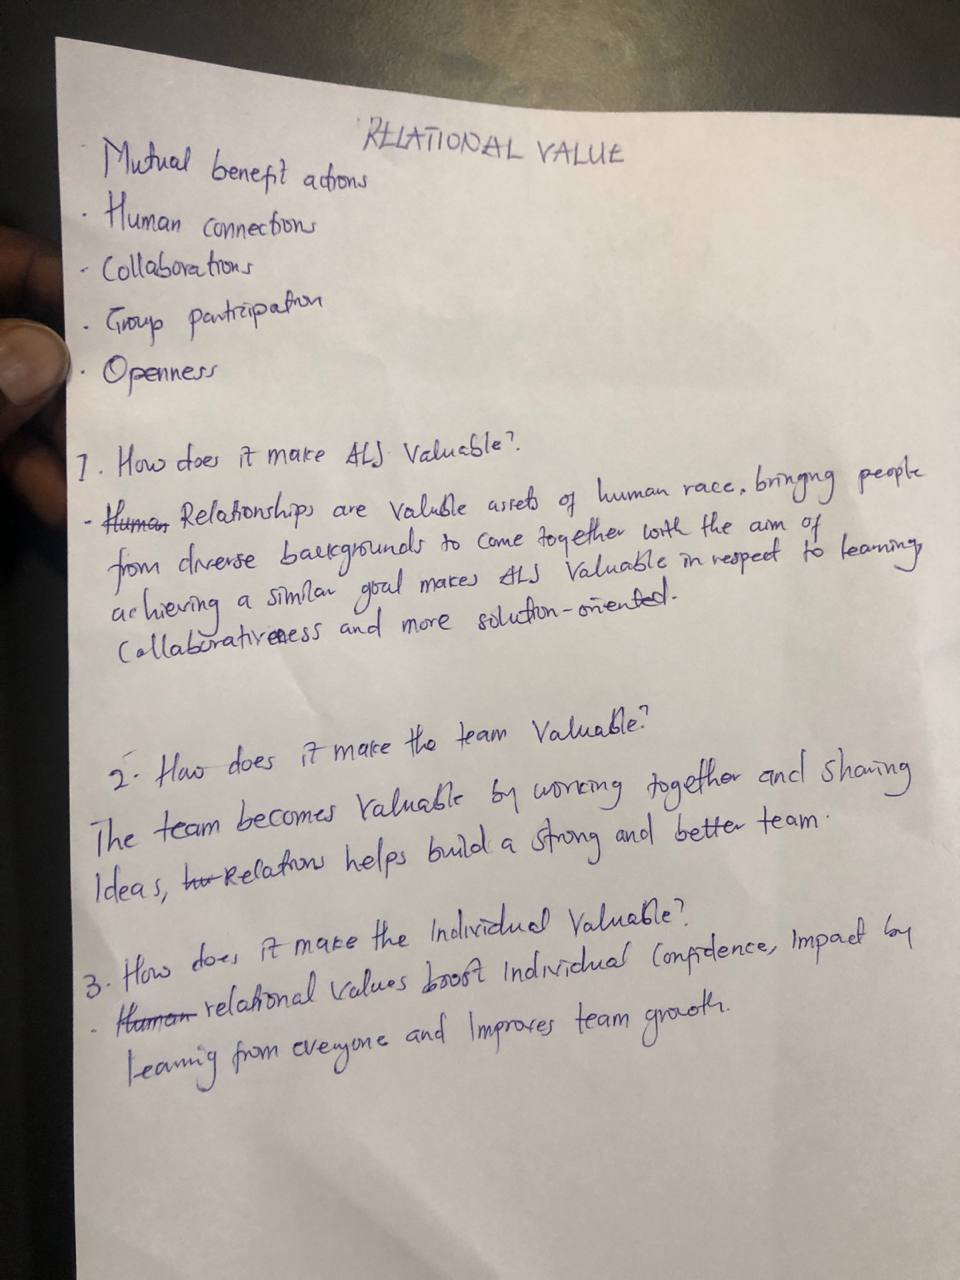 RELATIONAL VALUE
· Mutual benefit actions
· Human connections
· Collaborations
· Group participation
· Openness
1. How does it make ALJ valuable?
- Human Relationships are valuble assets of human race, bringing people
from diverse backgrounds to come together with the aim of
achieving a similar goal makes ALJ valuable in respect to learning,
Collaborativeness and more solution-oriented.
2. How does it make the team valuable?
The team becomes valuable by working together and sharing
Ideas, hu Relations helps build a strong and better team.
3. How does it make the Individual valuable?
· Human relational values boost Individual Confidence, Impact by
learning from everyone and Improves team growth.